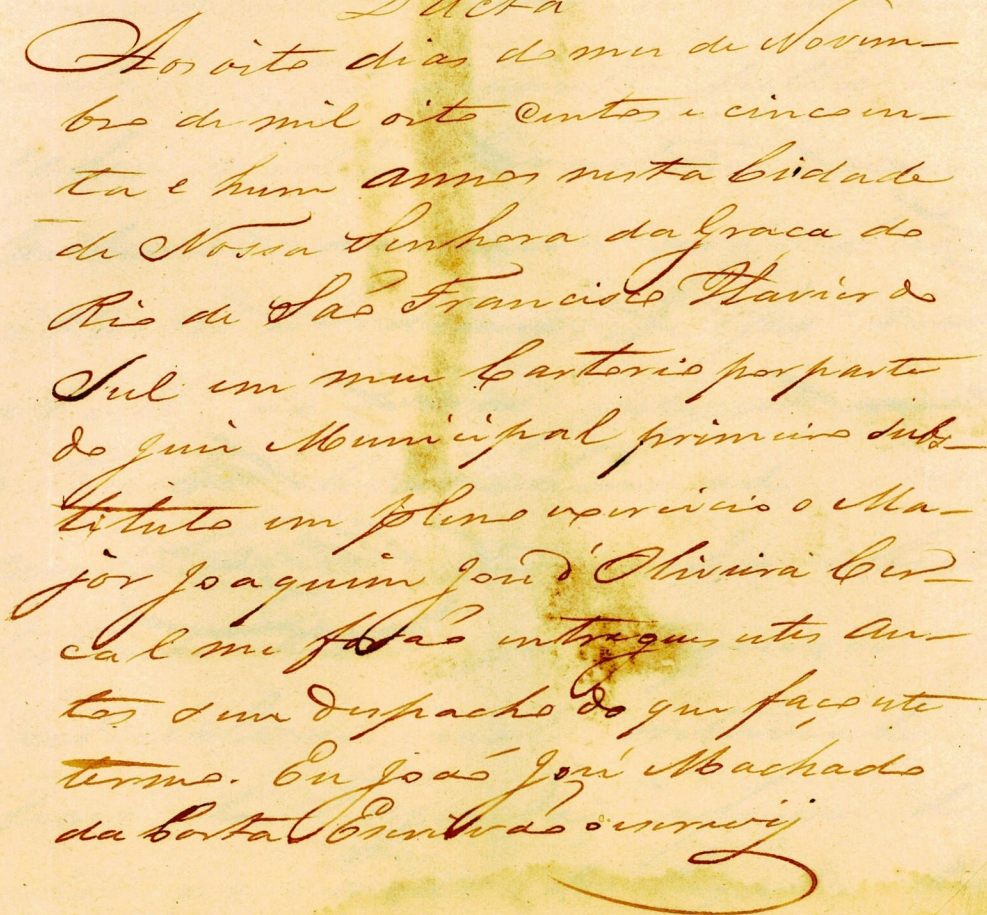 Data
Aos oito dias do mes de Novem-
bro de mil oito centos e cincoen-
ta e hum annos nesta Cidade
de Nossa Senhora da Graça do
Rio de São Francisco Xavier do
Sul em meu Cartorio por parte
do Juis Municipal primeiro subs-
tituto em pleno exercicio o Ma-
jor Joaquim José d'Oliveira Cer-
cal me forão entregues estes au-
tos seu despacho do que faço este
termo. Eu João José Machado
da Costa Escrivão o escrevij